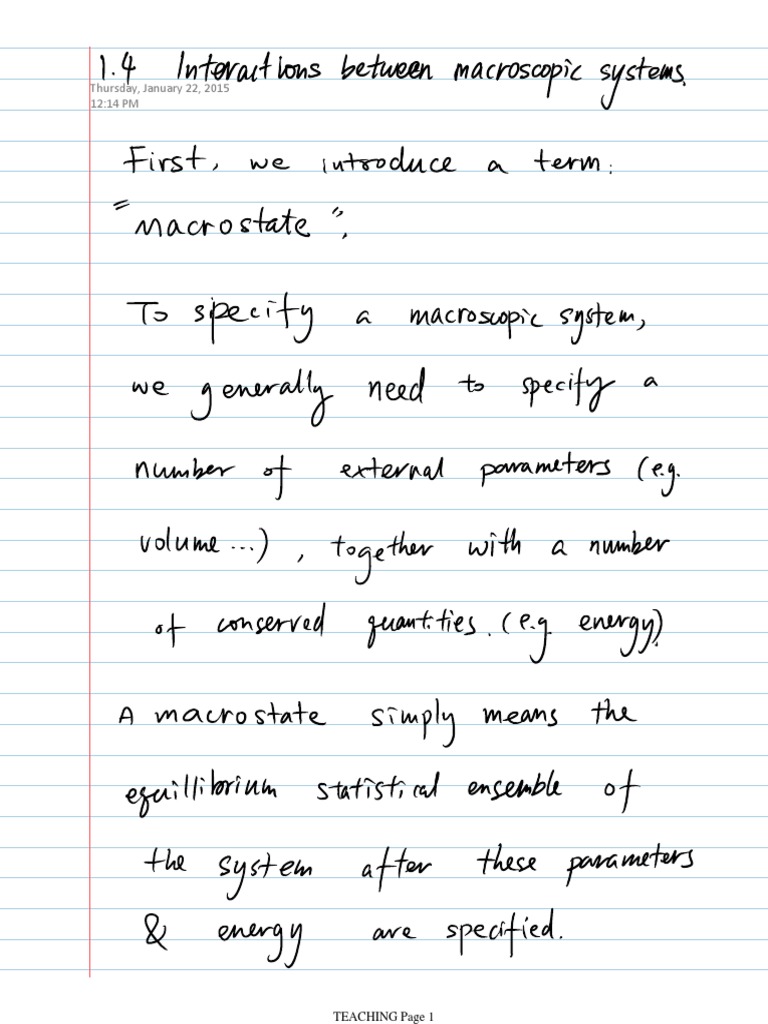 1.4 Interactions between macroscopic systems.
Thursday, January 22, 2015
12:14 PM
First, we introduce a term:
"macrostate".
To specify a macroscopic system,
we generally need to specify a
number of external parameters (e.g.
volume...), together with a number
of conserved quantities. (e.g energy).
A macrostate simply means the
equillibrium statistical ensemble of
the system after these parameters
& energy are specified.
TEACHING Page 1